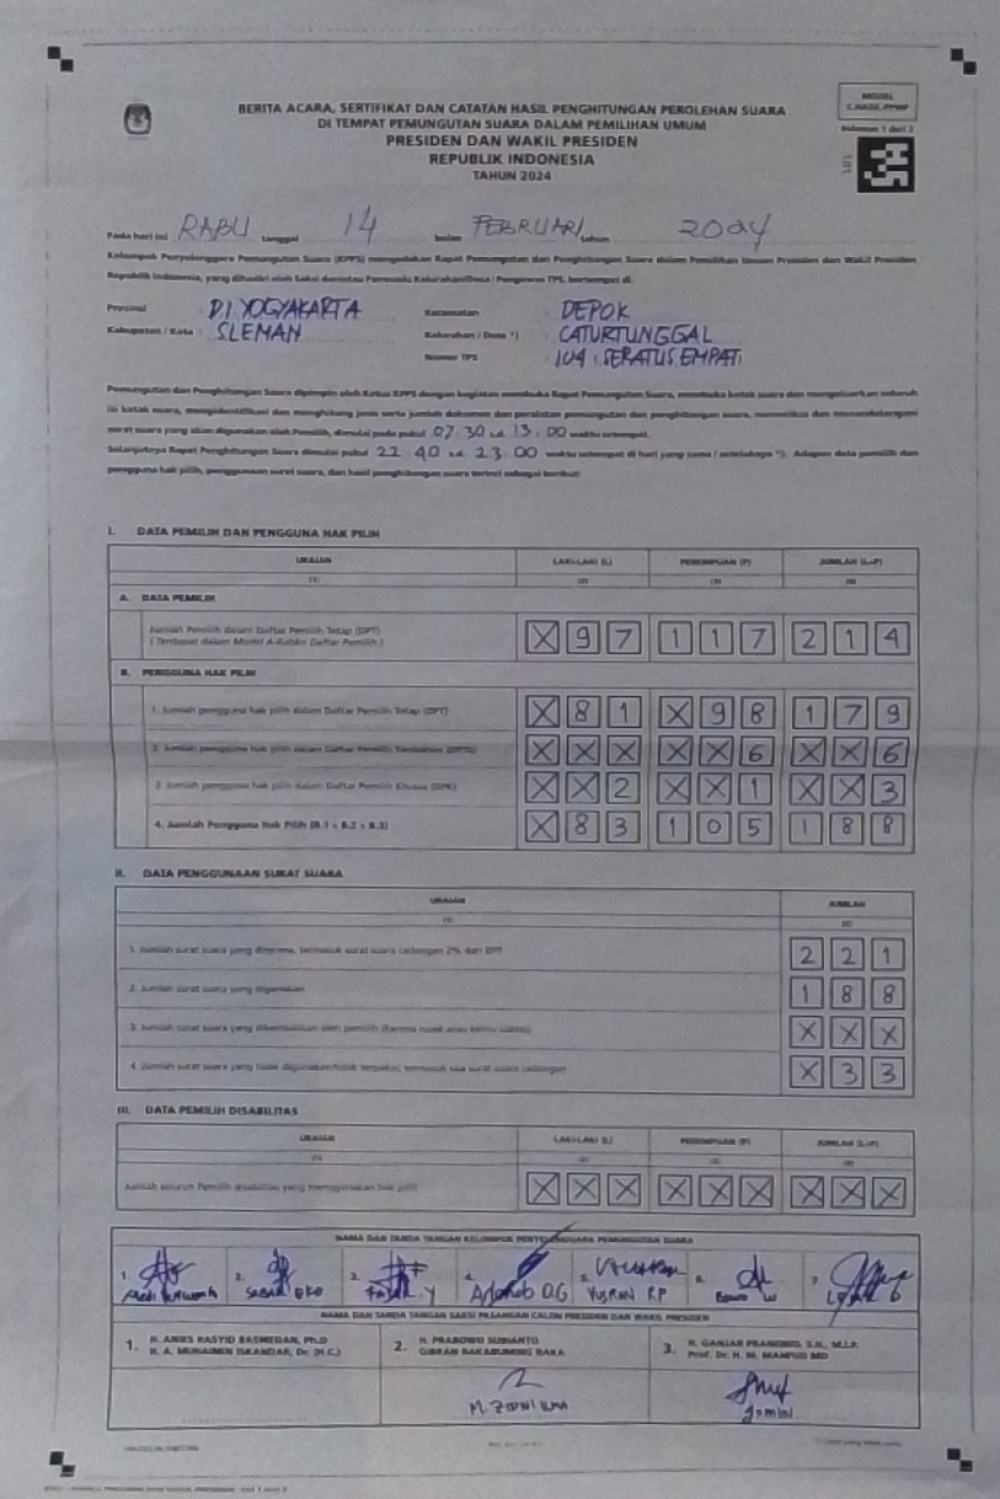 MODEL
C.HASIL-PPWP
Halaman 1 dari 3
BERITA ACARA, SERTIFIKAT DAN CATATAN HASIL PENGHITUNGAN PEROLEHAN SUARA
DI TEMPAT PEMUNGUTAN SUARA DALAM PEMILIHAN UMUM
PRESIDEN DAN WAKIL PRESIDEN
REPUBLIK INDONESIA
TAHUN 2024
101
Pada hari ini RABU tanggal 14 bulan FEBRUARI tahun 2024
Kelompok Penyelenggara Pemungutan Suara (KPPS) mengadakan Rapat Pemungutan dan Penghitungan Suara dalam Pemilihan Umum Presiden dan Wakil Presiden
Republik Indonesia, yang dihadiri oleh Saksi dan/atau Panwaslu Kelurahan/Desa / Pengawas TPS, bertempat di:
Provinsi : D.I YOGYAKARTA Kecamatan : DEPOK
Kabupaten / Kota : SLEMAN Kelurahan / Desa *) : CATURTUNGGAL
Nomor TPS : 104 : SERATUS EMPAT
Pemungutan dan Penghitungan Suara dipimpin oleh Ketua KPPS dengan kegiatan membuka Rapat Pemungutan Suara, membuka kotak suara dan mengeluarkan seluruh
isi kotak suara, mengidentifikasi dan menghitung jenis serta jumlah dokumen dan peralatan pemungutan dan penghitungan suara, memeriksa dan menandatangani
surat suara yang akan digunakan oleh Pemilih, dimulai pada pukul 07:30 s.d. 13:00 waktu setempat.
Selanjutnya Rapat Penghitungan Suara dimulai pukul 22 40 s.d. 23:00 waktu setempat di hari yang sama / setelahnya *). Adapun data pemilih dan
pengguna hak pilih, penggunaan surat suara, dan hasil penghitungan suara terinci sebagai berikut:
I. DATA PEMILIH DAN PENGGUNA HAK PILIH
URAIAN LAKI-LAKI (L) PEREMPUAN (P) JUMLAH (L+P)
(1) (2) (3) (4)
A. DATA PEMILIH
Jumlah Pemilih dalam Daftar Pemilih Tetap (DPT)
(Terdapat dalam Model A-Kabko Daftar Pemilih) X 9 7 1 1 7 2 1 4
B. PENGGUNA HAK PILIH
1. Jumlah pengguna hak pilih dalam Daftar Pemilih Tetap (DPT) X 8 1 X 9 8 1 7 9
2. Jumlah pengguna hak pilih dalam Daftar Pemilih Tambahan (DPTb) X X X X X 6 X X 6
3. Jumlah pengguna hak pilih dalam Daftar Pemilih Khusus (DPK) X X 2 X X 1 X X 3
4. Jumlah Pengguna Hak Pilih (B.1 + B.2 + B.3) X 8 3 1 0 5 1 8 8
II. DATA PENGGUNAAN SURAT SUARA
URAIAN JUMLAH
(1) (2)
1. Jumlah surat suara yang diterima, termasuk surat suara cadangan 2% dari DPT 2 2 1
2. Jumlah surat suara yang digunakan 1 8 8
3. Jumlah surat suara yang dikembalikan oleh pemilih (karena rusak atau keliru coblos) X X X
4. Jumlah surat suara yang tidak digunakan/tidak terpakai, termasuk sisa surat suara cadangan X 3 3
III. DATA PEMILIH DISABILITAS
URAIAN LAKI-LAKI (L) PEREMPUAN (P) JUMLAH (L+P)
(1) (2) (3) (4)
Jumlah seluruh Pemilih disabilitas yang menggunakan hak pilih X X X X X X X X X
NAMA DAN TANDA TANGAN KELOMPOK PENYELENGGARA PEMUNGUTAN SUARA
1. 2. 3. 4. 5. YUSRON R.P 6. 7.
NAMA DAN TANDA TANGAN SAKSI PASANGAN CALON PRESIDEN DAN WAKIL PRESIDEN
1. H. ANIES RASYID BASWEDAN, Ph.D
H. A. MUHAIMIN ISKANDAR, Dr. (H.C.)
2. H. PRABOWO SUBIANTO
GIBRAN RAKABUMING RAKA
3. H. GANJAR PRANOWO, S.H., M.I.P.
Prof. Dr. H. M. MAHFUD MD
M. ZIDNI ILMA